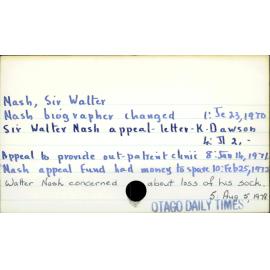 Nash, Sir Walter
Nash biographer changed 1: Je 23, 1970
Sir Walter Nash appeal-letter-K. Dawson
4: Jl 2, -
Appeal to provide out-patient clinic 8: Jan 14, 1971
Nash appeal Fund had money to spare 10: Feb 25, 1972
Walter Nash concerned about loss of his sock.
5 Aug 5, 1978
OTAGO DAILY TIMES